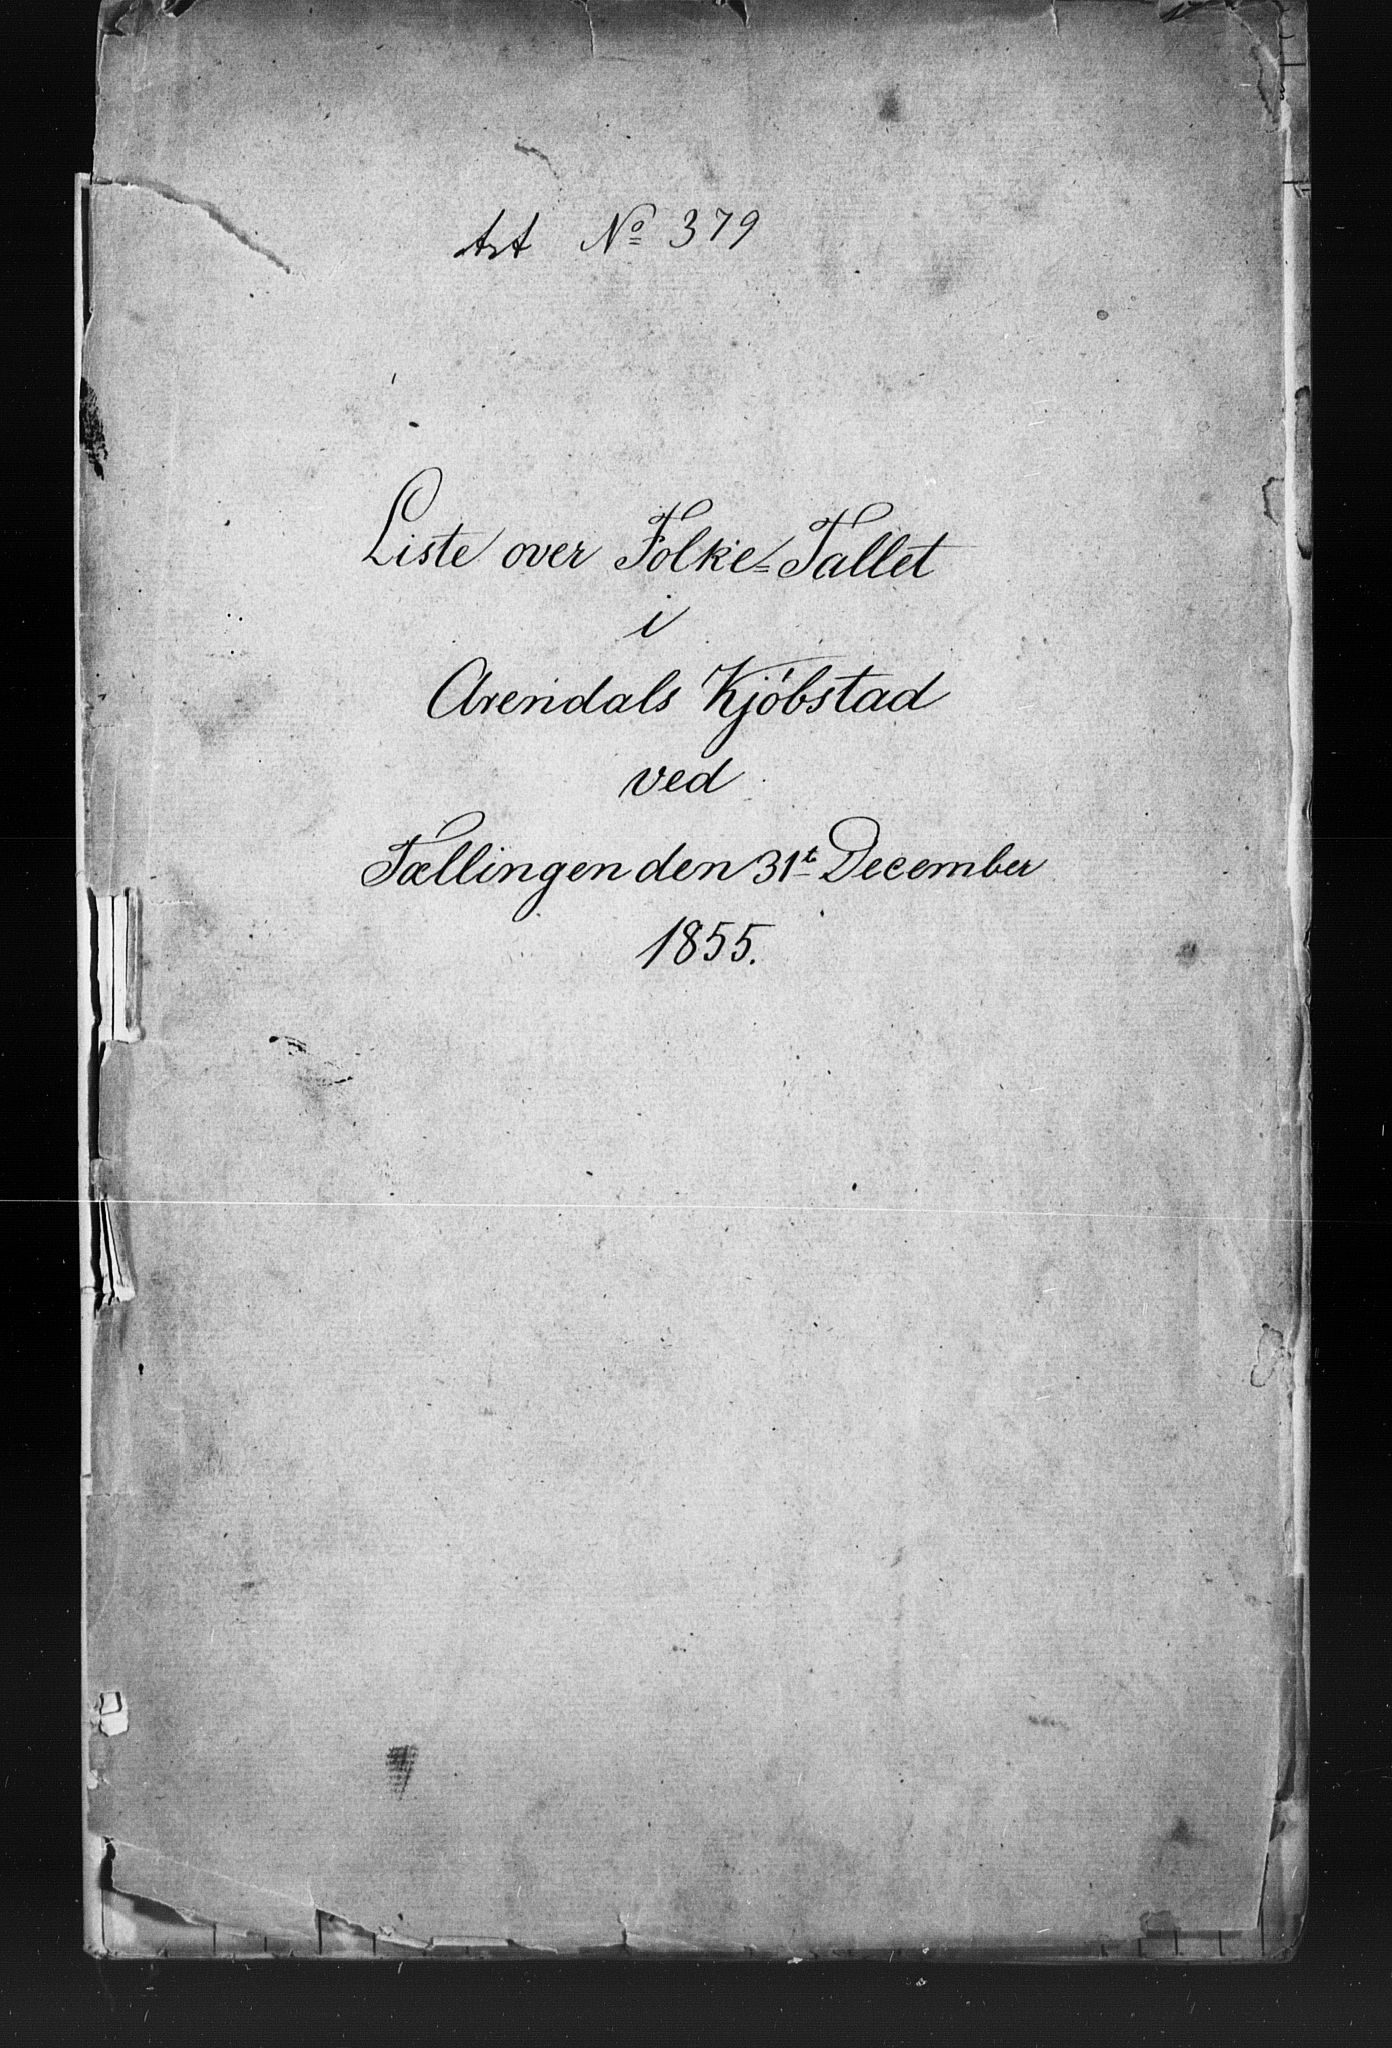 No 379
Liste over Folke=Tallet
i
Arendals Kjöbstad
ved
Tællingen den 31t December
1855.